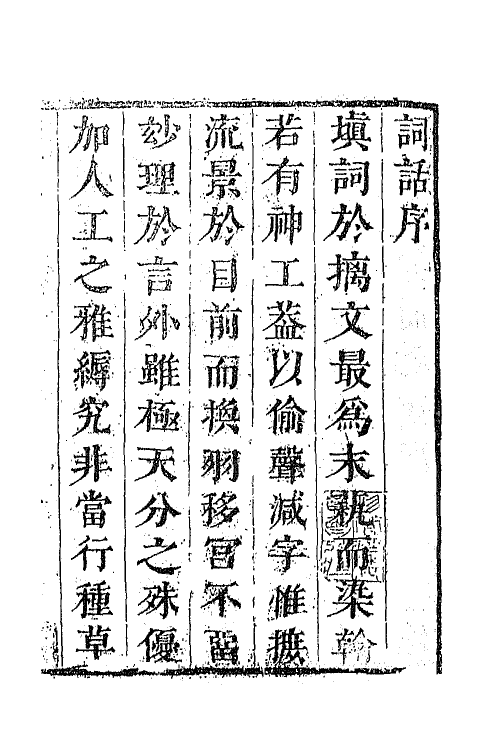 詞話序
填詞於摛文最爲末瓻而染翰
若有神工葢以偷聲減字惟摭
流景於目前而換羽移宮不畱
玅理於言外雖極天分之殊優
加人工之雅縟究非當行種草